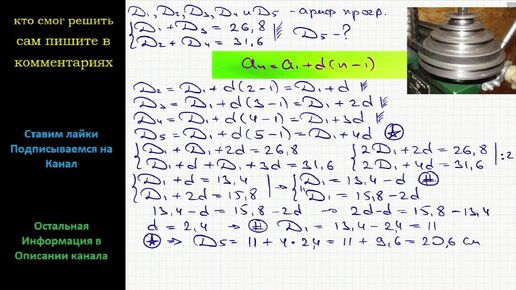 кто смог решить
сам пишите в
комментариях
Ставим лайки
Подписываемся на
Канал
Остальная
Информация в
Описании канала
D₁, D₂, D₃, D₄ и D₅ - ариф. прогр.
{ D₁ + D₃ = 26,8
D₂ + D₄ = 31,6
D₅ - ?
aₙ = a₁ + d(n-1)
D₂ = D₁ + d(2-1) = D₁ + d
D₃ = D₁ + d(3-1) = D₁ + 2d
D₄ = D₁ + d(4-1) = D₁ + 3d
D₅ = D₁ + d(5-1) = D₁ + 4d
{ D₁ + D₁ + 2d = 26,8
D₁ + d + D₁ + 3d = 31,6
{ 2D₁ + 2d = 26,8
2D₁ + 4d = 31,6 | :2
{ D₁ + d = 13,4
D₁ + 2d = 15,8
→ { D₁ = 13,4 - d (#)
D₁ = 15,8 - 2d
13,4 - d = 15,8 - 2d → 2d - d = 15,8 - 13,4
d = 2,4 → (#) D₁ = 13,4 - 2,4 = 11
⇒ D₅ = 11 + 4·2,4 = 11 + 9,6 = 20,6 см